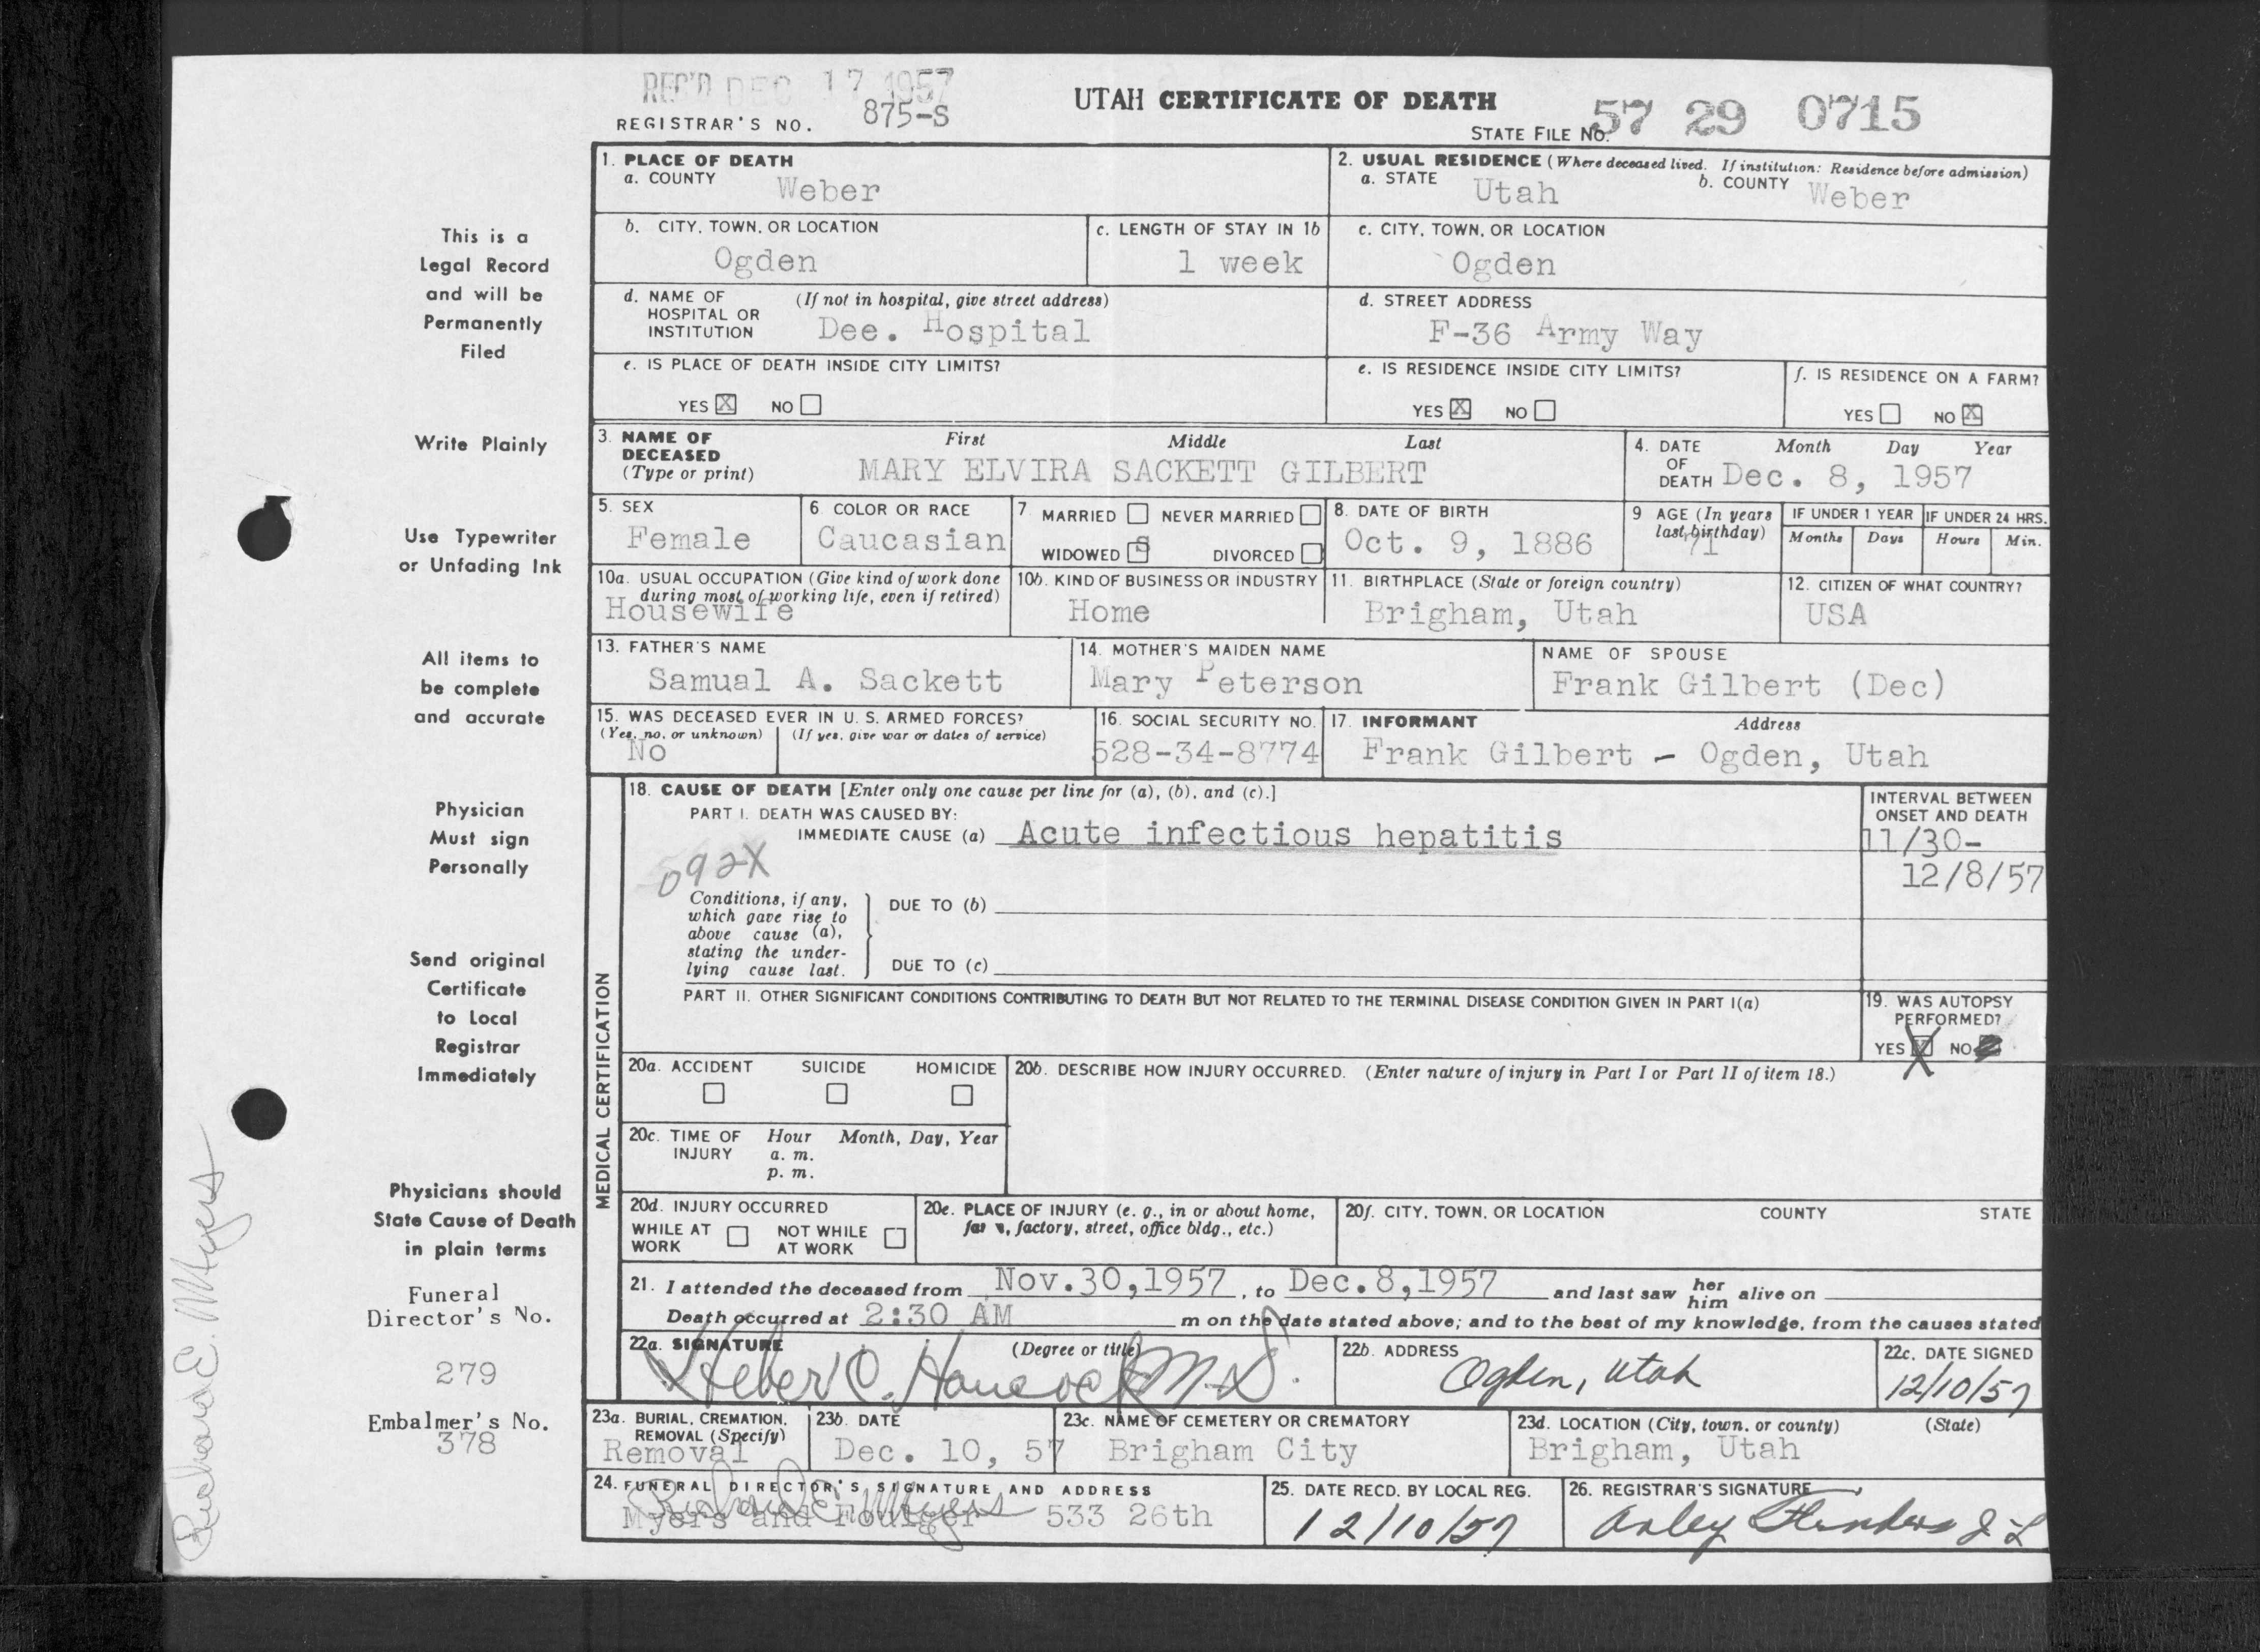 REC'D DEC 17 1957
REGISTRAR'S NO. 875-S
UTAH CERTIFICATE OF DEATH
STATE FILE NO. 57 29 0715
1. PLACE OF DEATH
a. COUNTY Weber
2. USUAL RESIDENCE (Where deceased lived. If institution: Residence before admission)
a. STATE Utah b. COUNTY Weber
b. CITY, TOWN, OR LOCATION
Ogden
c. LENGTH OF STAY IN 1b
1 week
c. CITY, TOWN, OR LOCATION
Ogden
d. NAME OF HOSPITAL OR INSTITUTION (If not in hospital, give street address)
Dee. Hospital
d. STREET ADDRESS
F-36 Army Way
e. IS PLACE OF DEATH INSIDE CITY LIMITS?
YES X NO
e. IS RESIDENCE INSIDE CITY LIMITS?
YES X NO
f. IS RESIDENCE ON A FARM?
YES NO X
3. NAME OF DECEASED (Type or print) First Middle Last
MARY ELVIRA SACKETT GILBERT
4. DATE OF DEATH Month Day Year
Dec. 8, 1957
5. SEX
Female
6. COLOR OR RACE
Caucasian
7. MARRIED NEVER MARRIED
WIDOWED S DIVORCED
8. DATE OF BIRTH
Oct. 9, 1886
9 AGE (In years last birthday)
71
IF UNDER 1 YEAR IF UNDER 24 HRS.
Months Days Hours Min.
10a. USUAL OCCUPATION (Give kind of work done during most of working life, even if retired)
Housewife
10b. KIND OF BUSINESS OR INDUSTRY
Home
11. BIRTHPLACE (State or foreign country)
Brigham, Utah
12. CITIZEN OF WHAT COUNTRY?
USA
13. FATHER'S NAME
Samual A. Sackett
14. MOTHER'S MAIDEN NAME
Mary Peterson
NAME OF SPOUSE
Frank Gilbert (Dec)
15. WAS DECEASED EVER IN U. S. ARMED FORCES?
(Yes, no, or unknown) (If yes, give war or dates of service)
No
16. SOCIAL SECURITY NO.
528-34-8774
17. INFORMANT Address
Frank Gilbert - Ogden, Utah
MEDICAL CERTIFICATION
18. CAUSE OF DEATH [Enter only one cause per line for (a), (b), and (c).]
PART I. DEATH WAS CAUSED BY:
IMMEDIATE CAUSE (a) Acute infectious hepatitis
092X
INTERVAL BETWEEN ONSET AND DEATH
11/30-
12/8/57
Conditions, if any, which gave rise to above cause (a), stating the underlying cause last.
DUE TO (b)
DUE TO (c)
PART II. OTHER SIGNIFICANT CONDITIONS CONTRIBUTING TO DEATH BUT NOT RELATED TO THE TERMINAL DISEASE CONDITION GIVEN IN PART I(a)
19. WAS AUTOPSY PERFORMED?
YES X NO
20a. ACCIDENT SUICIDE HOMICIDE
20b. DESCRIBE HOW INJURY OCCURRED. (Enter nature of injury in Part I or Part II of item 18.)
20c. TIME OF INJURY Hour Month, Day, Year
a. m.
p. m.
20d. INJURY OCCURRED
WHILE AT WORK NOT WHILE AT WORK
20e. PLACE OF INJURY (e. g., in or about home, farm, factory, street, office bldg., etc.)
20f. CITY, TOWN, OR LOCATION COUNTY STATE
21. I attended the deceased from Nov.30,1957, to Dec.8,1957 and last saw her him alive on
Death occurred at 2:30 AM m on the date stated above; and to the best of my knowledge, from the causes stated
22a. SIGNATURE (Degree or title)
Heber C. Hancock M.D.
22b. ADDRESS
Ogden, Utah
22c. DATE SIGNED
12/10/57
23a. BURIAL, CREMATION, REMOVAL (Specify)
Removal
23b. DATE
Dec. 10, 57
23c. NAME OF CEMETERY OR CREMATORY
Brigham City
23d. LOCATION (City, town, or county) (State)
Brigham, Utah
24. FUNERAL DIRECTOR'S SIGNATURE AND ADDRESS
Richard E. Myers
Myers and Foulger 533 26th
25. DATE RECD. BY LOCAL REG.
12/10/57
26. REGISTRAR'S SIGNATURE
This is a
Legal Record
and will be
Permanently
Filed
Write Plainly
Use Typewriter
or Unfading Ink
All items to
be complete
and accurate
Physician
Must sign
Personally
Send original
Certificate
to Local
Registrar
Immediately
Physicians should
State Cause of Death
in plain terms
Funeral
Director's No.
279
Embalmer's No.
378
Richard E. Myers